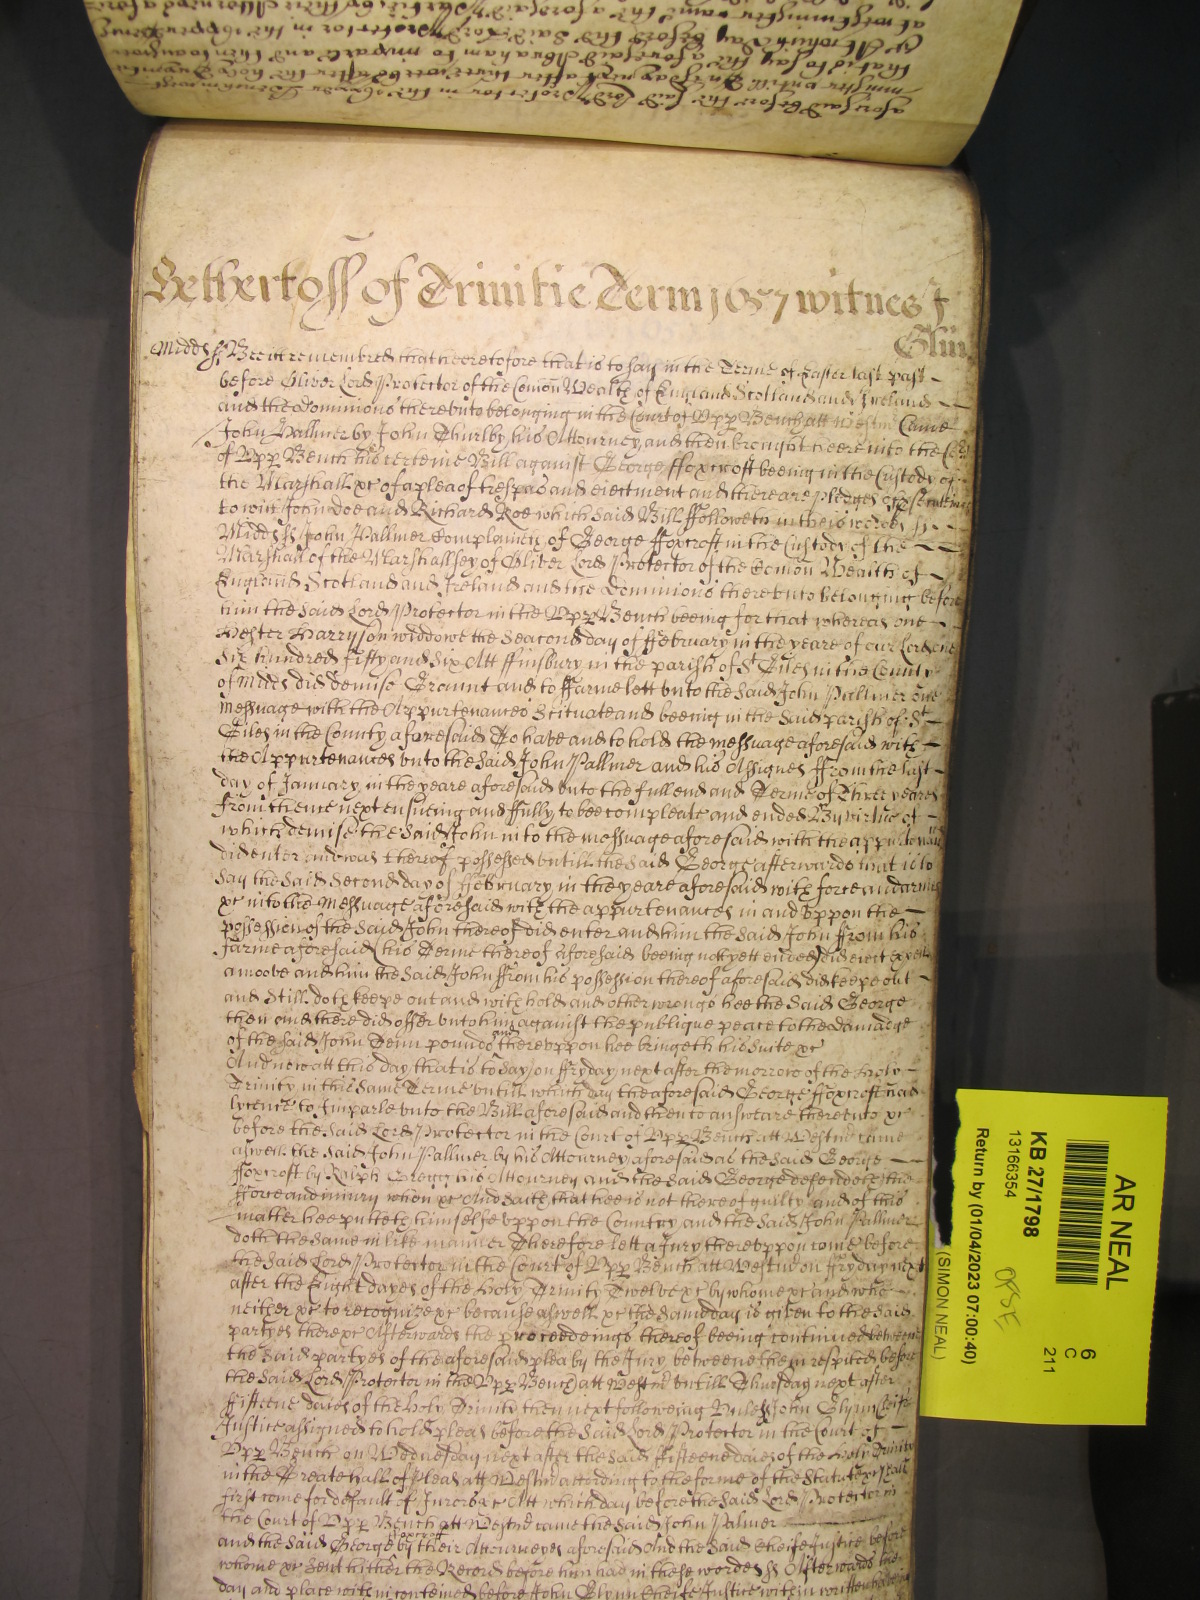 Yet hertofss of Trinitie Term 1657 witnes J
Glin
Midds ss Bee it remembred that heeretofore that is to say in the Terme of Easter last past
before Oliver Lord Protector of the Comon Wealth of England Scotland and Ireland
and the dominions therevnto belonging in the Court of Vpp Bench att Westmr Came
John Pallmer by John Thurlby his Attourney and then brought heere into the Court
of Vpp Bench his certeine Bill against George ffoxcroft beeing in the Custody of
the Marshall xc of a plea of trespas and eiectment and there are pledges of prosecuting
to witt John doe and Richard Roe which said Bill ffolloweth in theis wordes ss
Midds ss John Pallmer complaines of George ffoxcroft in the Custody of the
Marshall of the Marshallsey of Oliver Lord Protector of the Comon Wealth of
England Scotland and Ireland and the Dominions therevnto belonging before
him the said Lord Protector in the Vpp Bench beeing for that whereas one
Hester Harryson widdowe the Seacond day of ffebruary in the yeare of our Lord one
six hundred fifty and six Att ffinsbury in the parish of St Giles in the County
of Midds did demise Graunt and to ffarme lett vnto the said John Pallmer one
messuage with the Appurtenances Scituate and beeing in the said parish of St
Giles in the County aforesaid To have and to hold the messuage aforesaid with
the Appurtenances vnto the said John Pallmer and his Assignes ffrom the last
day of January in the yeare aforesaid vnto the full end and Terme of Three yeares
from thence next ensueing and ffully to bee compleate and ended By virtue of
which demise the said John into the messuage aforesaid with the appurtenances
did enter and was thereof possessed vntill the said George afterwards that is to
say the said Second day of ffebruary in the yeare aforesaid with force and armes
xc into the messuage aforesaid with the appurtenances in and vppon the
possession of the said John thereof did enter and him the said John ffrom his
farme aforesaid (his Terme thereof aforesaid beeing not yett ended) did eiect expell
amoove and him the said John ffrom his possession thereof aforesaid did keepe out
and still doth keepe out and with hold and other wrongs hee the said George
then and there did offer vnto him against the publique peace to the damadge
of the said John Tenn pounds and therevppon hee bringeth his suite xc
And now att this day that is to say on ffryday next after the morrow of the holy
Trinity in this same Terme vntill which day the aforesaid George ffoxcroft had
lycence to Imparle vnto the Bill aforesaid and then to answeare therevnto xc
before the said Lord Protector in the Court of Vpp Bench att Westmr came
aswell the said John Pallmer by his Attourney aforesaid as the said George
ffoxcroft by Ralph Gregg his Attourney and the said George defendeth the
fforce and iniury when xc And saith that hee is not thereof guilty and of this
matter hee putteth himselfe vppon the Country and the said John Pallmer
doth the same in like manner Therefore lett a Jury therevppon come before
the said Lord Protector in the Court of Vpp Bench att Westmr on ffryday next
after the Eight dayes of the holy Trinity Twelve xc by whome xc and whoe
neither xc to recognize xc because aswell xc the same day is given to the said
partyes there xc Afterwards the proceedings thereof beeing continued betweene
the said partyes of the aforesaid plea by the Jury betweene them respited before
the said Lord Protector in the Vpp Bench att Westmr vntill Thursday next after
ffifteene daies of the holy Trinity then next following Vnless John Glynn Cheife
Justice assigned to hold pleas before the said Lord Protector in the Court of
Vpp Bench on Wednesday next after the said ffifteene daies of the holy Trinity
in the Greate hall of Pleas att Westmr according to the forme of the Statute xc shall
first come for default of Jurors xc Att which day before the said Lord Protector in
the Court of Vpp Bench att Westmr came the said John Palmer
and the said George foxcroft by their Attourneyes aforesaid And the said Cheife Justice before
whome xc sent hither the Record before him had in these wordes ss Afterwards the
day and place within conteined before John Glynn Cheife Justice within written
AR NEAL
KB 27/1798
13166354
Return by (01/04/2023 07:00:40)
(SIMON NEAL)
6
C
211